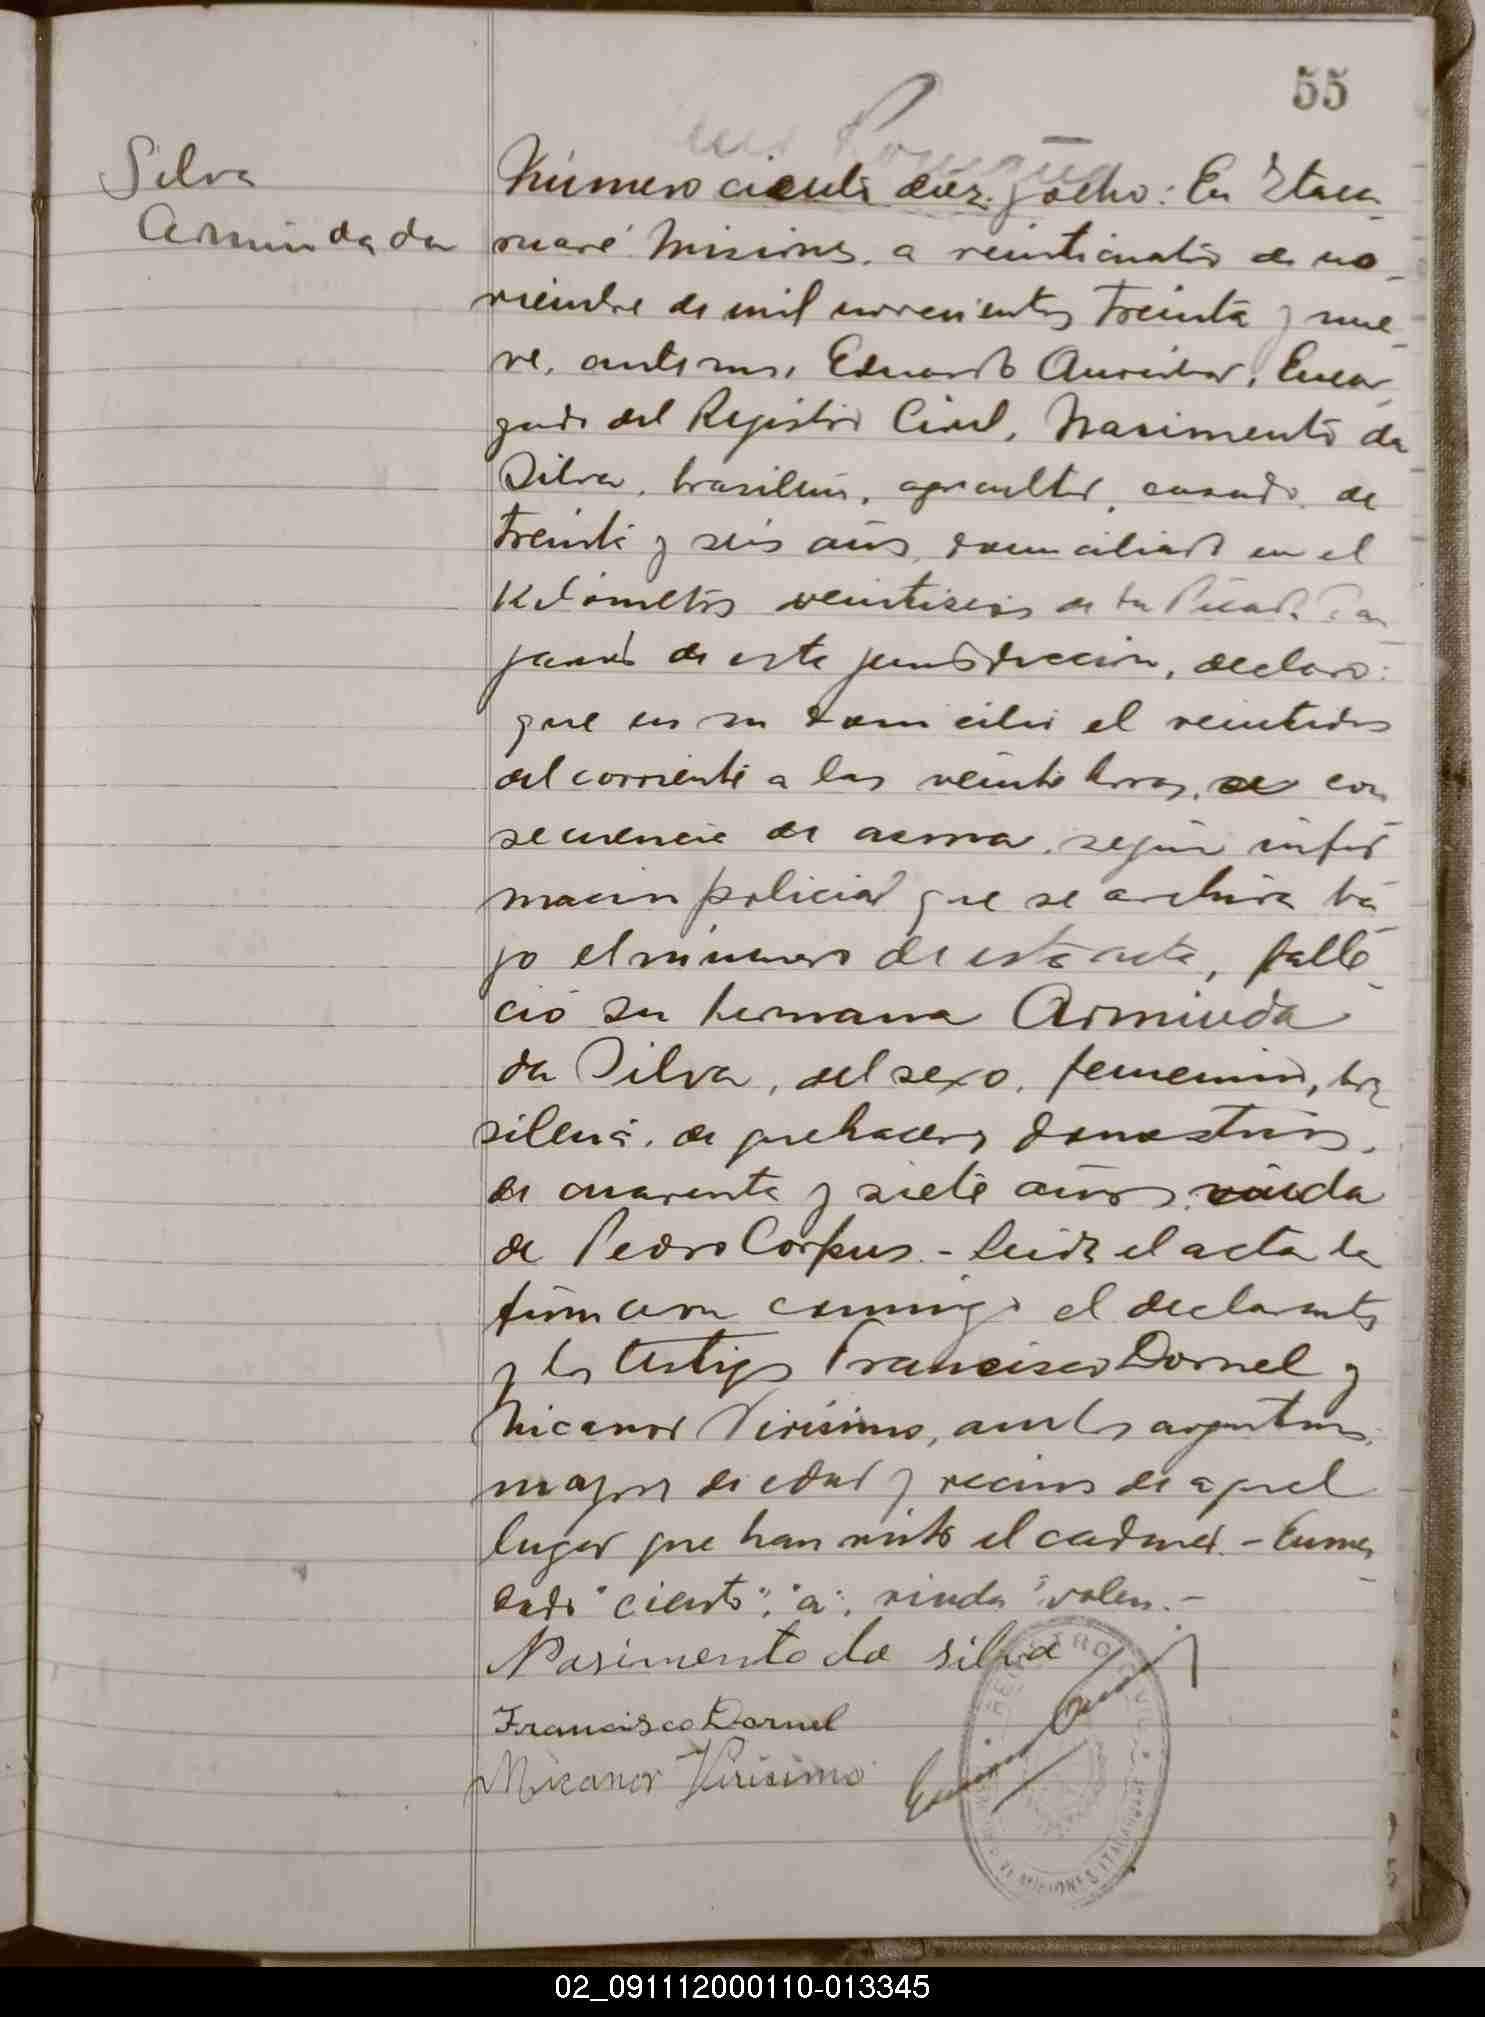 55
Silva
Arminda da
Número ciento diez y ocho: En Itaca-
ruaré Misiones, a veinticuatro de no-
viembre de mil novecientos treinta y nue-
ve, ante mi, Eduardo Encar-
gado del Registro Civil, Nasimento da
Silva, brasileño, agricultor, casado, de
treinta y seis años, domiciliado en el
Kilómetro veintiseis de la Picada
de esta jurisdiccion, declaro:
que en su domicilio el veintidos
del corriente a las veinte horas, a con
secuencia de asma, según infor
macion policial que se archiva ba
jo el número de esta acta, falle-
ció su hermana Arminda
da Silva, del sexo, femenino, bra
sileña, de quehaceres domesticos,
de cuarenta y siete años, viuda
de Pedro Corpus.- Leida el acta la
firmaron conmigo el declarante
y los testigos Francisco Dornel y
Nicanor Virisimo, ambos argentinos,
mayores de edad y vecinos de aquel
lugar que han visto el cadaver.- Enmen-
dado "ciento", "a", viuda "valen.-
Nasimento da silva
Francisco Dornel
Nicanor Virisimo
REGISTRO CIVIL
MISIONES ITACARUARE
02_091112000110-013345